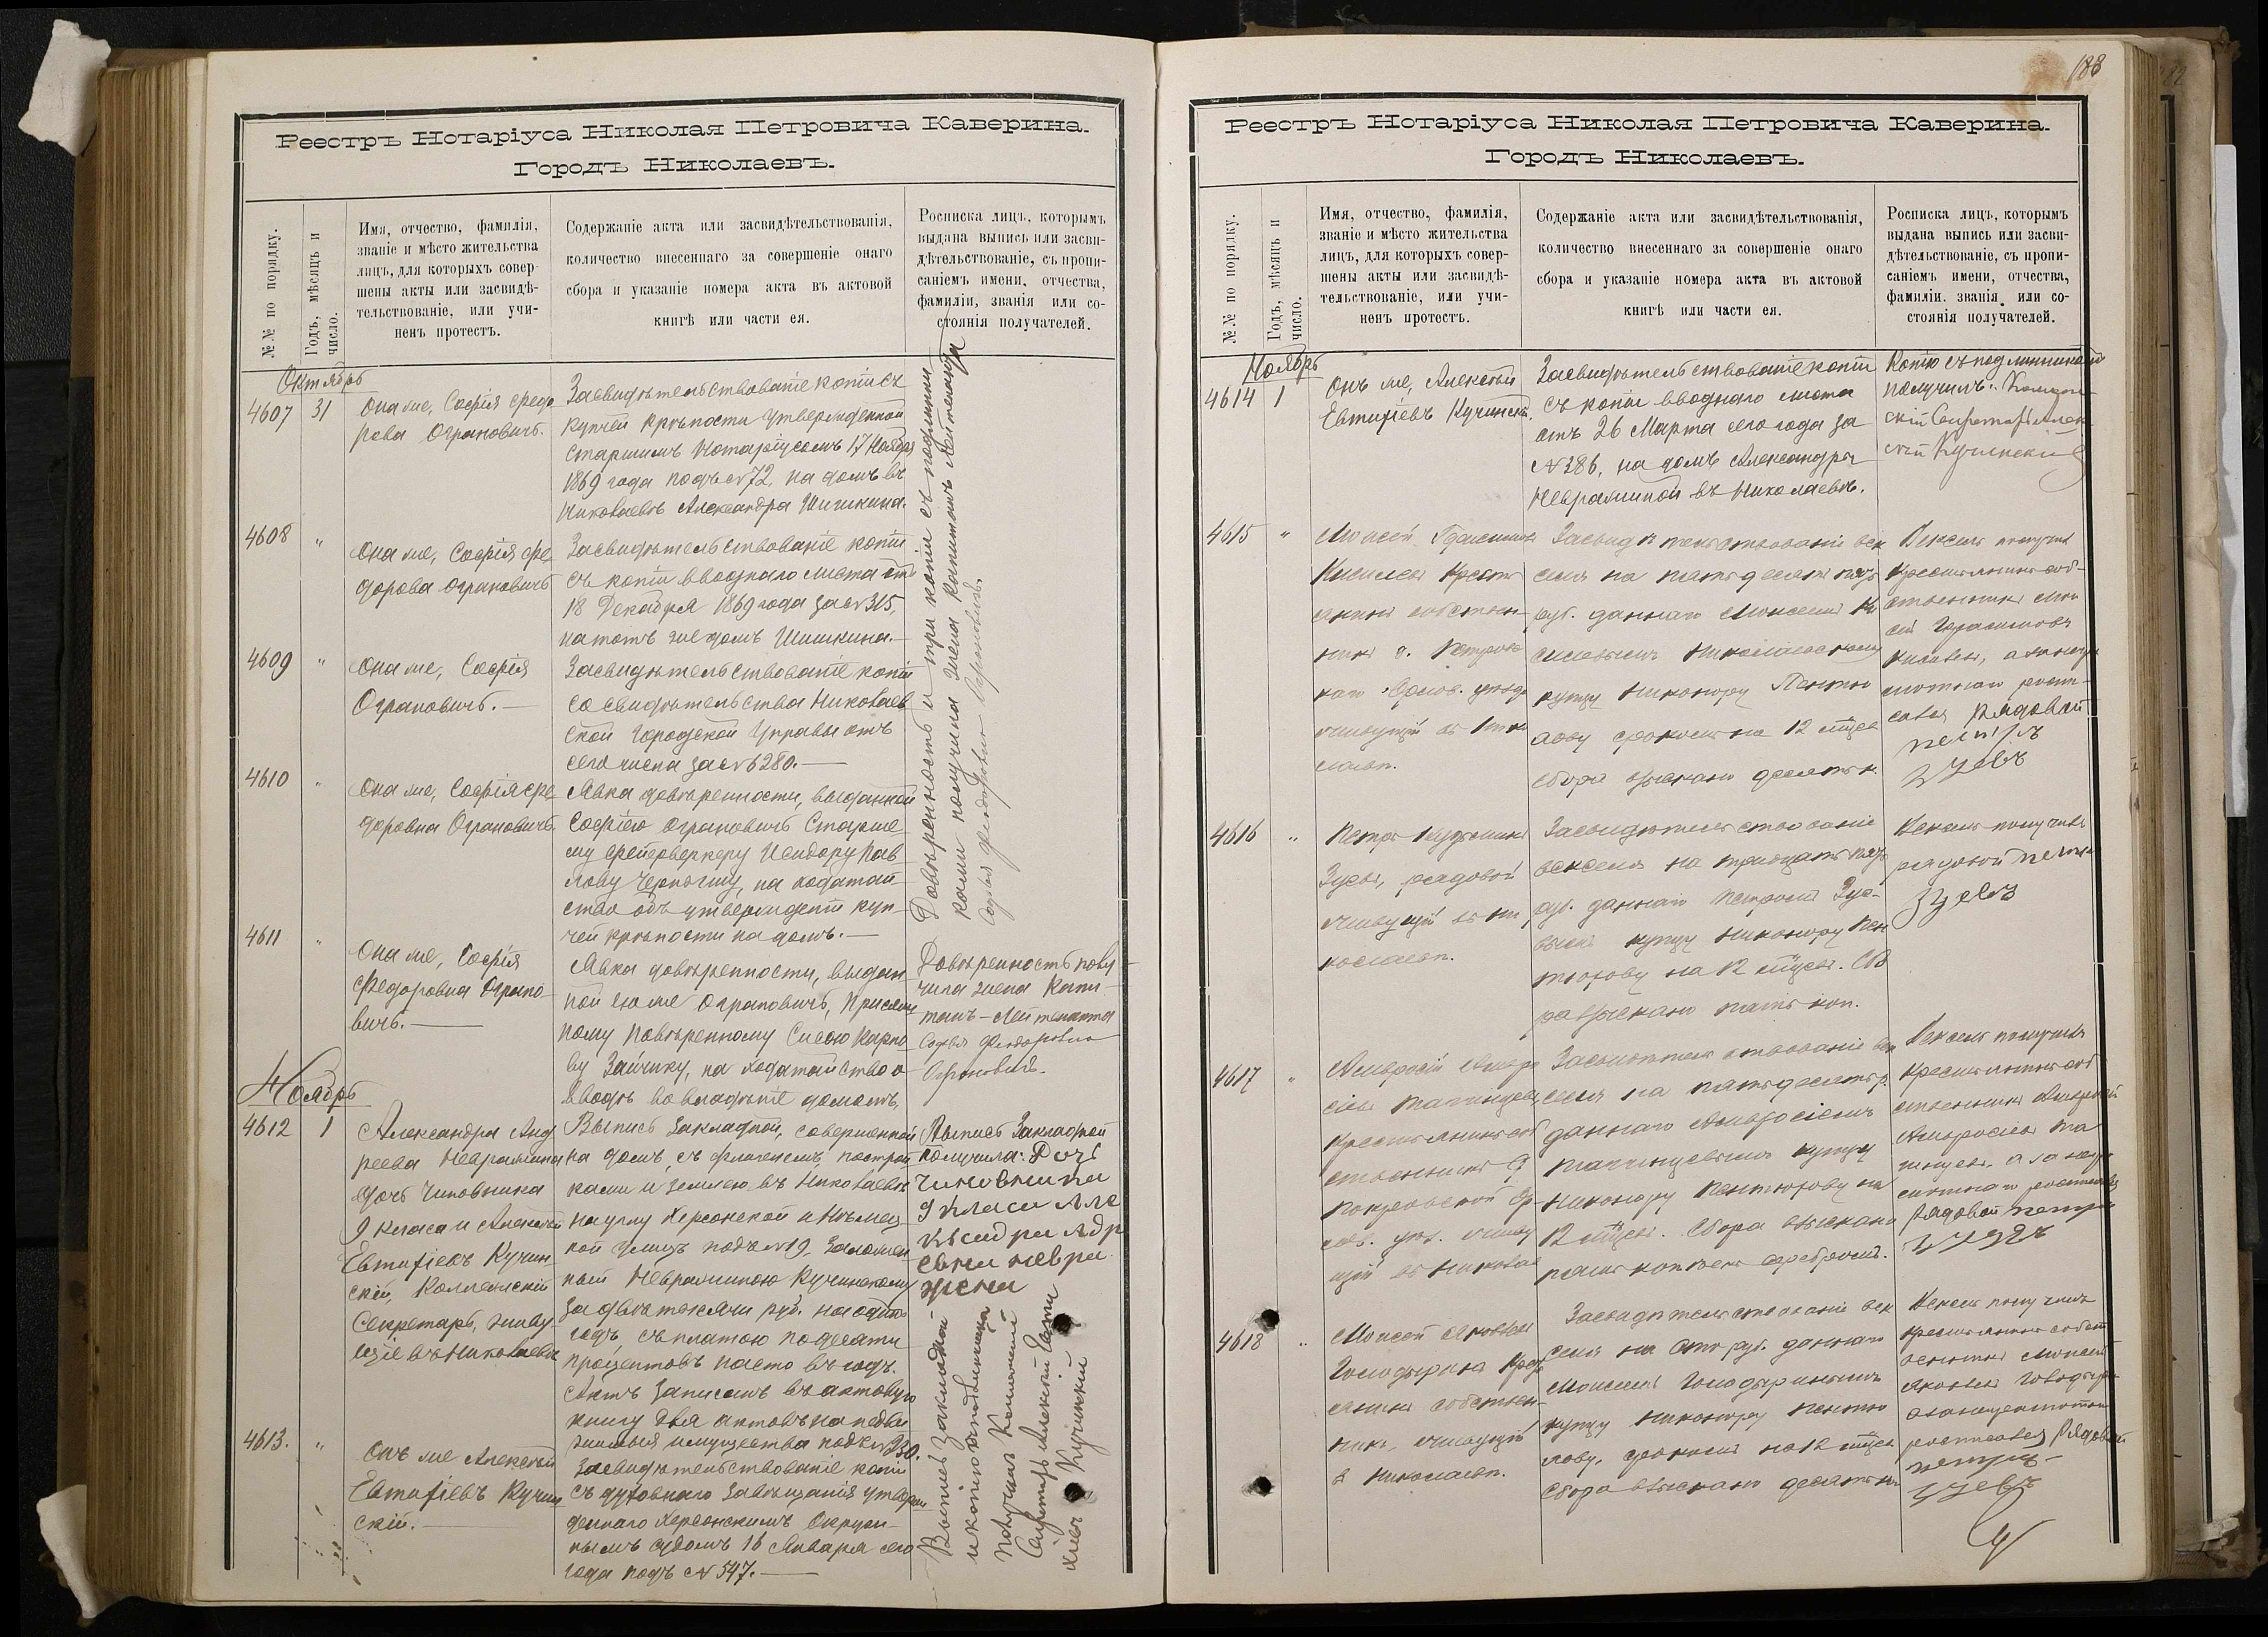 Реестръ Нотаріуса Николая Петровича Каверина.
Городъ Николаевъ.
№№ по порядку.
Годъ, мѣсяцъ и
число.
Имя, отчество, фамилія,
званіе и мѣсто жительства
лицъ, для которыхъ совер-
шены акты или засвидѣ-
тельствованіе, или учи-
ненъ протестъ.
Содержаніе акта или засвидѣтельствованія,
количество внесеннаго за совершеніе онаго
сбора и указаніе номера акта въ актовой
книгѣ или части ея.
Росписка лицъ, которымъ
выдана выпись или засви-
дѣтельствованіе, съ пропи-
саніемъ имени, отчества,
фамиліи, званія или со-
стоянія получателей.
Октябрь
4607 31
Она же, Софія Федо
рова Ограновичъ.
Засвидѣтельствованіе копіи съ
купчей крѣпости утвержденной
Старшимъ Нотаріусомъ 17 Ноября
1869 года подъ № 72, на домъ въ
Николаевѣ Александра Шишкина.
4608 "
Она же, Софія Фе
дорова Ограновичъ
Засвидѣтельствованіе копіи
съ копіи вводнаго листа отъ
18 Декабря 1869 года за № 315,
на тотъ же домъ Шишкина.—
4609 "
Она же, Софія
Ограновичъ.—
Засвидѣтельствованіе копіи
со свидѣтельства Николаев
ской Городской Управы отъ
сего числа за № 6280.—
4610 "
Она же, Софія Фе
доровна Ограновичъ.
Явка довѣренности, выданной
Софіею Ограновичъ Старше
му фейерверкеру Исидору Пав
лову Черногину, на ходатай
ство объ утвержденіи куп
чей крѣпости на домъ.—
Довѣренность и три копіи съ подлинни
ками получила жена Капитанъ Лейтенанта
Софья Феодоровна Ограновичъ.
4611 "
Она же, Софія
Федоровна Ограно
вичъ.—
Явка довѣренности, выдан
ной ею же Ограновичъ, Присяж
ному Повѣренному Сысою Карпо
ву Зайчику, на ходатайство о
вводѣ во владѣніе домомъ.
Довѣренность полу
чила жена Капи
танъ-Лейтенанта
Софья Феодоровна
Ограновичъ.
Ноябрь
4612 1
Александра Анд
реева Невражина
дочь Чиновника
9 класса и Алексѣй
Евтифіевъ Кучин
скій, Коллежскій
Секретарь, живу
щіе въ Николаевѣ
Выпись Закладной, совершенной
на домъ, съ флигелемъ, построй
ками и землею въ Николаевѣ
на углу Херсонской и Нѣмец
кой улицъ подъ № 19. Заложен
ный Невражиною Кучинскому
за двѣ тысячи руб. на одинъ
годъ, съ платою по десяти
процентовъ на сто въ годъ.
Актъ записанъ въ актовую
книгу для актовъ на недви
жимыя имущества подъ № 230.
Выпись Закладной
получила: Дочь
Чиновника
9 класа Але
ксандра Адр
евна невра
жена
4613. "
Онъ же Алексѣй
Евтифіевъ Кучин
скій.—
Засвидѣтельствованіе копіи
съ духовнаго завѣщанія утверж
деннаго Херсонскимъ Окруж
нымъ судомъ 16 Января сего
года подъ № 547.—
Выпись закладной
и копію съ подлинникомъ
получилъ Коллежскій
Секретарь Алексѣй Евти
хіевъ Кучинскій
188
Реестръ Нотаріуса Николая Петровича Каверина.
Городъ Николаевъ.
№№ по порядку.
Годъ, мѣсяцъ и
число.
Имя, отчество, фамилія,
званіе и мѣсто жительства
лицъ, для которыхъ совер-
шены акты или засвидѣ-
тельствованіе, или учи-
ненъ протестъ.
Содержаніе акта или засвидѣтельствованія,
количество внесеннаго за совершеніе онаго
сбора и указаніе номера акта въ актовой
книгѣ или части ея.
Росписка лицъ, которымъ
выдана выпись или засви-
дѣтельствованіе, съ пропи-
саніемъ имени, отчества,
фамиліи. званія или со-
стоянія получателей.
Ноябрь
4614 1
Онъ же, Алексѣй
Евтифіевъ Кучинскій.
Засвидѣтельствованіе копіи
съ копіи вводнаго листа
отъ 26 Марта сего года за
№ 386, на домъ Александры
Невражиной въ Николаевѣ.
Копію съ подлинникомъ
получилъ: Коллеж
скій Секретарь Алек
сѣй Кучинскій
4615 "
Моисей Герасимовъ
Киселевъ Крестъ
янинъ собствен
никъ
живущій въ Нико
лаевѣ.
Засвидѣтельствованіе век
селя на пятьдесятъ пять
руб. даннаго Моисеемъ Ки
селевымъ Николаевскому
купцу Никонору Пентю
хову срокомъ на 12 мѣсяц
Сбора взыскано десять к.
Вексель получилъ
крестьянинъ соб-
ственникъ Мои
сей Герасимовъ
Киселевъ, а за негра
мотнаго роспи-
сался рядовой
петръ
зуевъ
4616 "
Петръ
Зуевъ, рядовой
живущій въ Ни
колаевѣ.
Засвидѣтельствованіе
векселя на тридцать пять
руб. даннаго Петромъ Зуе-
вымъ купцу Никонору Пен
тюхову на 12 мѣсяц. Сбо
ра взыскано пять коп.
Вексель получилъ
рядовой петръ
зуевъ
4617 "
Амвросій Амвро
сіевъ
Крестьянинъ соб
ственникъ
живу
щій въ Николае
Засвидѣтельствованіе век
селя на пятьдесятъ р.
даннаго Амвросіемъ
купцу
Никонору Пентюхову на
12 мѣсяц. Сбора взыскано
копѣекъ серебромъ.
Вексель получилъ
крестьянинъ соб
ственникъ Амвросій
Амвросіевъ
а за негра
мотнаго росписался
Рядовой петръ
зуевъ
4618 "
Моисей Яковлевъ
Голодырина Крест
янинъ собствен-
никъ, живущій
въ Николаевѣ.
Засвидѣтельствованіе век
селя на сто руб. даннаго
Моисеемъ Голодыринымъ
купцу Никонору Пентю
хову, срокомъ на 12 мѣсяц
Сбора взыскано десять к.
Вексель получилъ
крестьянинъ собст
венникъ Моисей
Яковлевъ Голодыр
а за неграмотнаго
росписался Рядовой
петръ
зуевъ